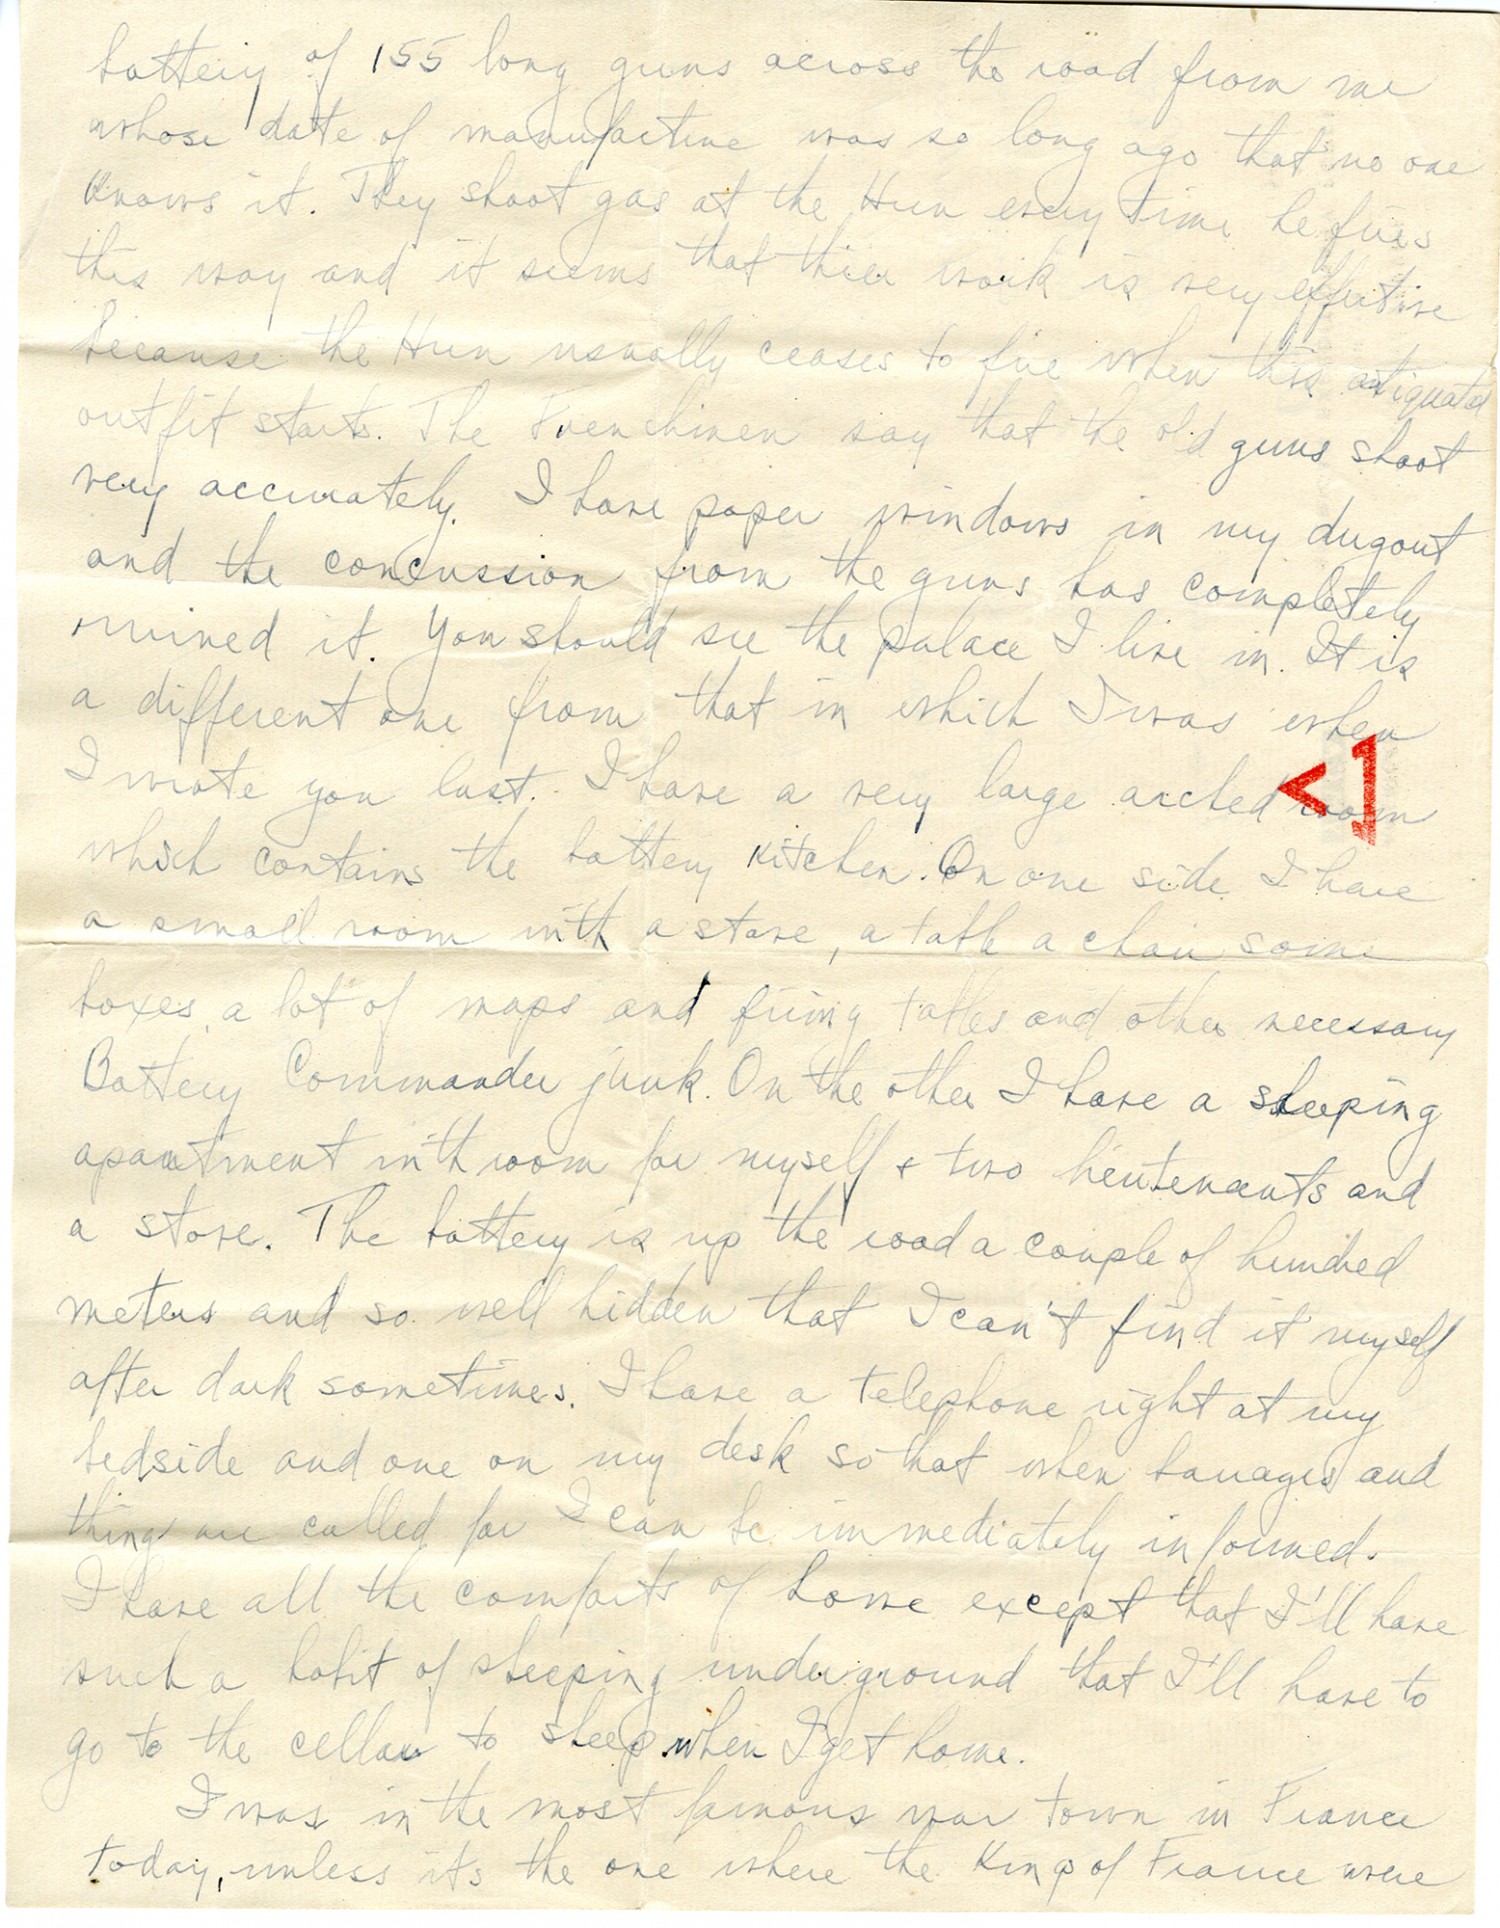 battery of 155 long guns across the road from me
whose date of manufacture was so long ago that no one
knows it. They shoot gas at the Hun every time he fires
this way and it seems that thier work is very effective
because the Hun usually ceases to fire when this antiquated
outfit starts. The Frenchmen say that the old guns shoot
very accurately. I have paper windows in my dugout
and the concussion from the guns has completely
ruined it. You should see the palace I live in. It is
a different one from that in which I was when
I wrote you last. I have a very large arched room
which contains the battery kitchen. On one side I have
a small room with a stove, a table a chair some
boxes, a lot of maps and firing tables and other necessary
Battery Commander junk. On the other I have a sleeping
apartment with room for myself & two lieutenants and
a stove. The battery is up the road a couple of hundred
meters and so well hidden that I can't find it myself
after dark sometimes. I have a telephone right at my
bedside and one on my desk so that when barrages and
things are called for I can be immediately informed.
I have all the comforts of home except that I'll have
such a habit of sleeping underground that I'll have to
go to the cellar to sleep when I get home.
I was in the most famous war town in France
today, unless its the one where the King of France were